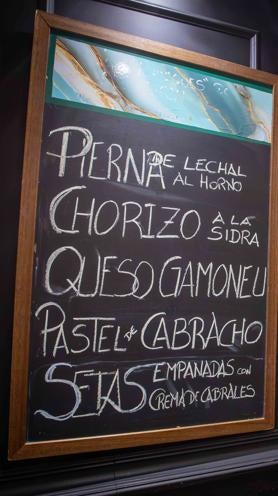 PIERNA DE LECHAL
AL HORNO
CHORIZO A LA
SIDRA
QUESO GAMONEU
PASTEL de CABRACHO
SETAS EMPANADAS CON
CREMA DE CABRALES